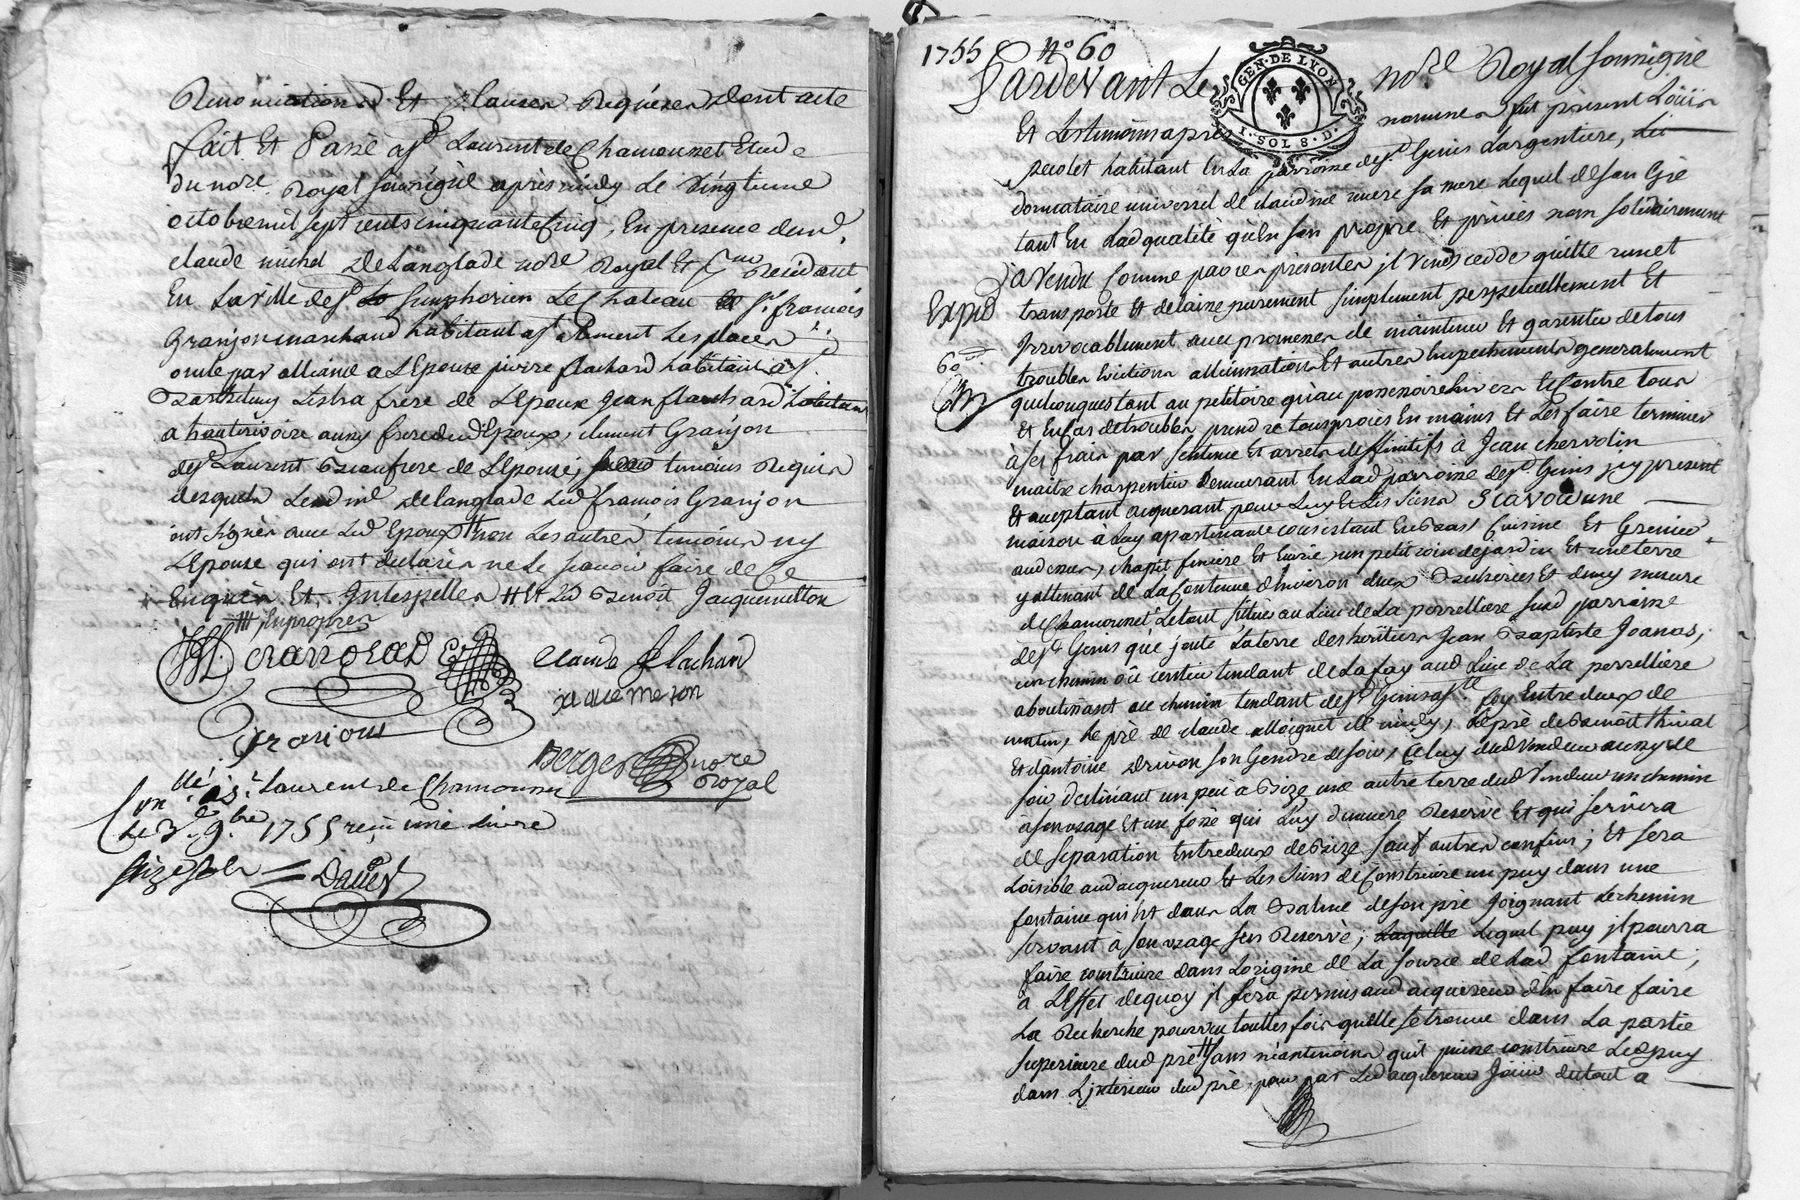 Renonciations Et Clauses Requises dont acte
fait Et Passé a St Laurent de Chamousset Etude
du nore Royal soussigné apres midy le vingtieme
octobre mil sept cents cinquante Cinq, En presence de
claude michel De Langlade nore Royal Et residant
En La ville de St Simphorien Le Chateau Sr françois
Granjon marchand habitant a St Clement Les places
oncle par alliance a L'Epouse pierre flachard habitant a St
Barthelmy Lestra frere de L'Epoux Jean flachard habitant
a hauterivoire aussy frere dud Epoux, clement Granjon
de St Laurent Beaufrere de L'Epouse, temoins Requis
desquels Led me delanglade Led françois Granjon
ont signés avec Led Epoux non Les autres temoins ny
L'Epouse qui ont declarés ne le sçavoir faire de Ce
Enquis Et Interpellés Et Led Benoit Jacquemetton
Granjean
claude flachard
jaquemeton
Granjon
Berger nore
Royal
Conllé à St Laurent de Chamousset
Le 3e 9bre 1755 reçu une livre
seize sols
1755 No 60
Pardevant Le nore Royal soussigné
GEN·DE LYON
1·SOL 8·D·
Et Les temoins après nommés fut présent Loüis
habitant En La parroisse de St Genis Largentiere,
donnataire universel de claudine sa mere Lequel de son Gré
tant En Lad qualité qu'En son propre Et privés nom solidairement
a Vendu Comme par ces présentes il Vend cedde quitte remet
Expié
60
transporte Et delaisse purement simplement perpetuellement Et
Irrevocablement avec promesses de maintenir Et garentir de tous
troubles Evictions allienations Et autres Empechements generalement
quelconques tant au petitoire qu'au possessoire Envers Et Contre tous
Et En cas de troubles prendre tous procès En mains Et Les faire terminer
à ses frais par sentence Et arrets deffinitifs à Jean chervolin
maitre charpentier demeurant En Lad parroisse de St Genis icy present
Et acceptant acquerant pour Luy Et Les siens Scavoir une
maison à Luy apartenante consistant En bas Cuisine Et Grenier
audessus, chapit feniere Et Ecurie, un petit coin de jardin Et une terre
y attenant de La Contenue d'Environ deux Bicherées Et demy mesure
de Chamousset Le tout situés au Lieu de La perrelliere susd parroisse
de St Genis que joute La terre des heritiers Jean Baptiste Joanas,
un chemin où sentier tendant de La fay aud Lieu de La perrelliere
aboutissant au chemin tendant de St Genis a Ste foy Entre deux de
matin, Le pré de claude de midy, Le pré de Benoit
Et d'antoine Drivon son Gendre de soir, Celuy dud Vendeur aussy de
soir declinant un peu à Bize une autre terre dud Vendeur un chemin
a son usage Et un fossé qui Luy demeure Reservé Et qui servira
de separation Entre deux de bize sauf autres confins; Et sera
Loisible aud acquereur Et Les siens de Construire un puy dans une
fontaine qui Est dans La Balme de son pré joignant Le chemin
servant à son usage sus Reservé, Laquelle Lequel puy il pourra
faire construire dans L'origine de La source de Lad fontaine;
à L'Effet dequoy il sera permis aud acquereur d'En faire faire
La Recherche pourvu touttes fois qu'elle se trouve dans La partie
Superieure dud pré sans néantmoins qu'il puisse construire Led puy
dans L'interieur dud pré, pour par Led acquereur Jouir du tout a